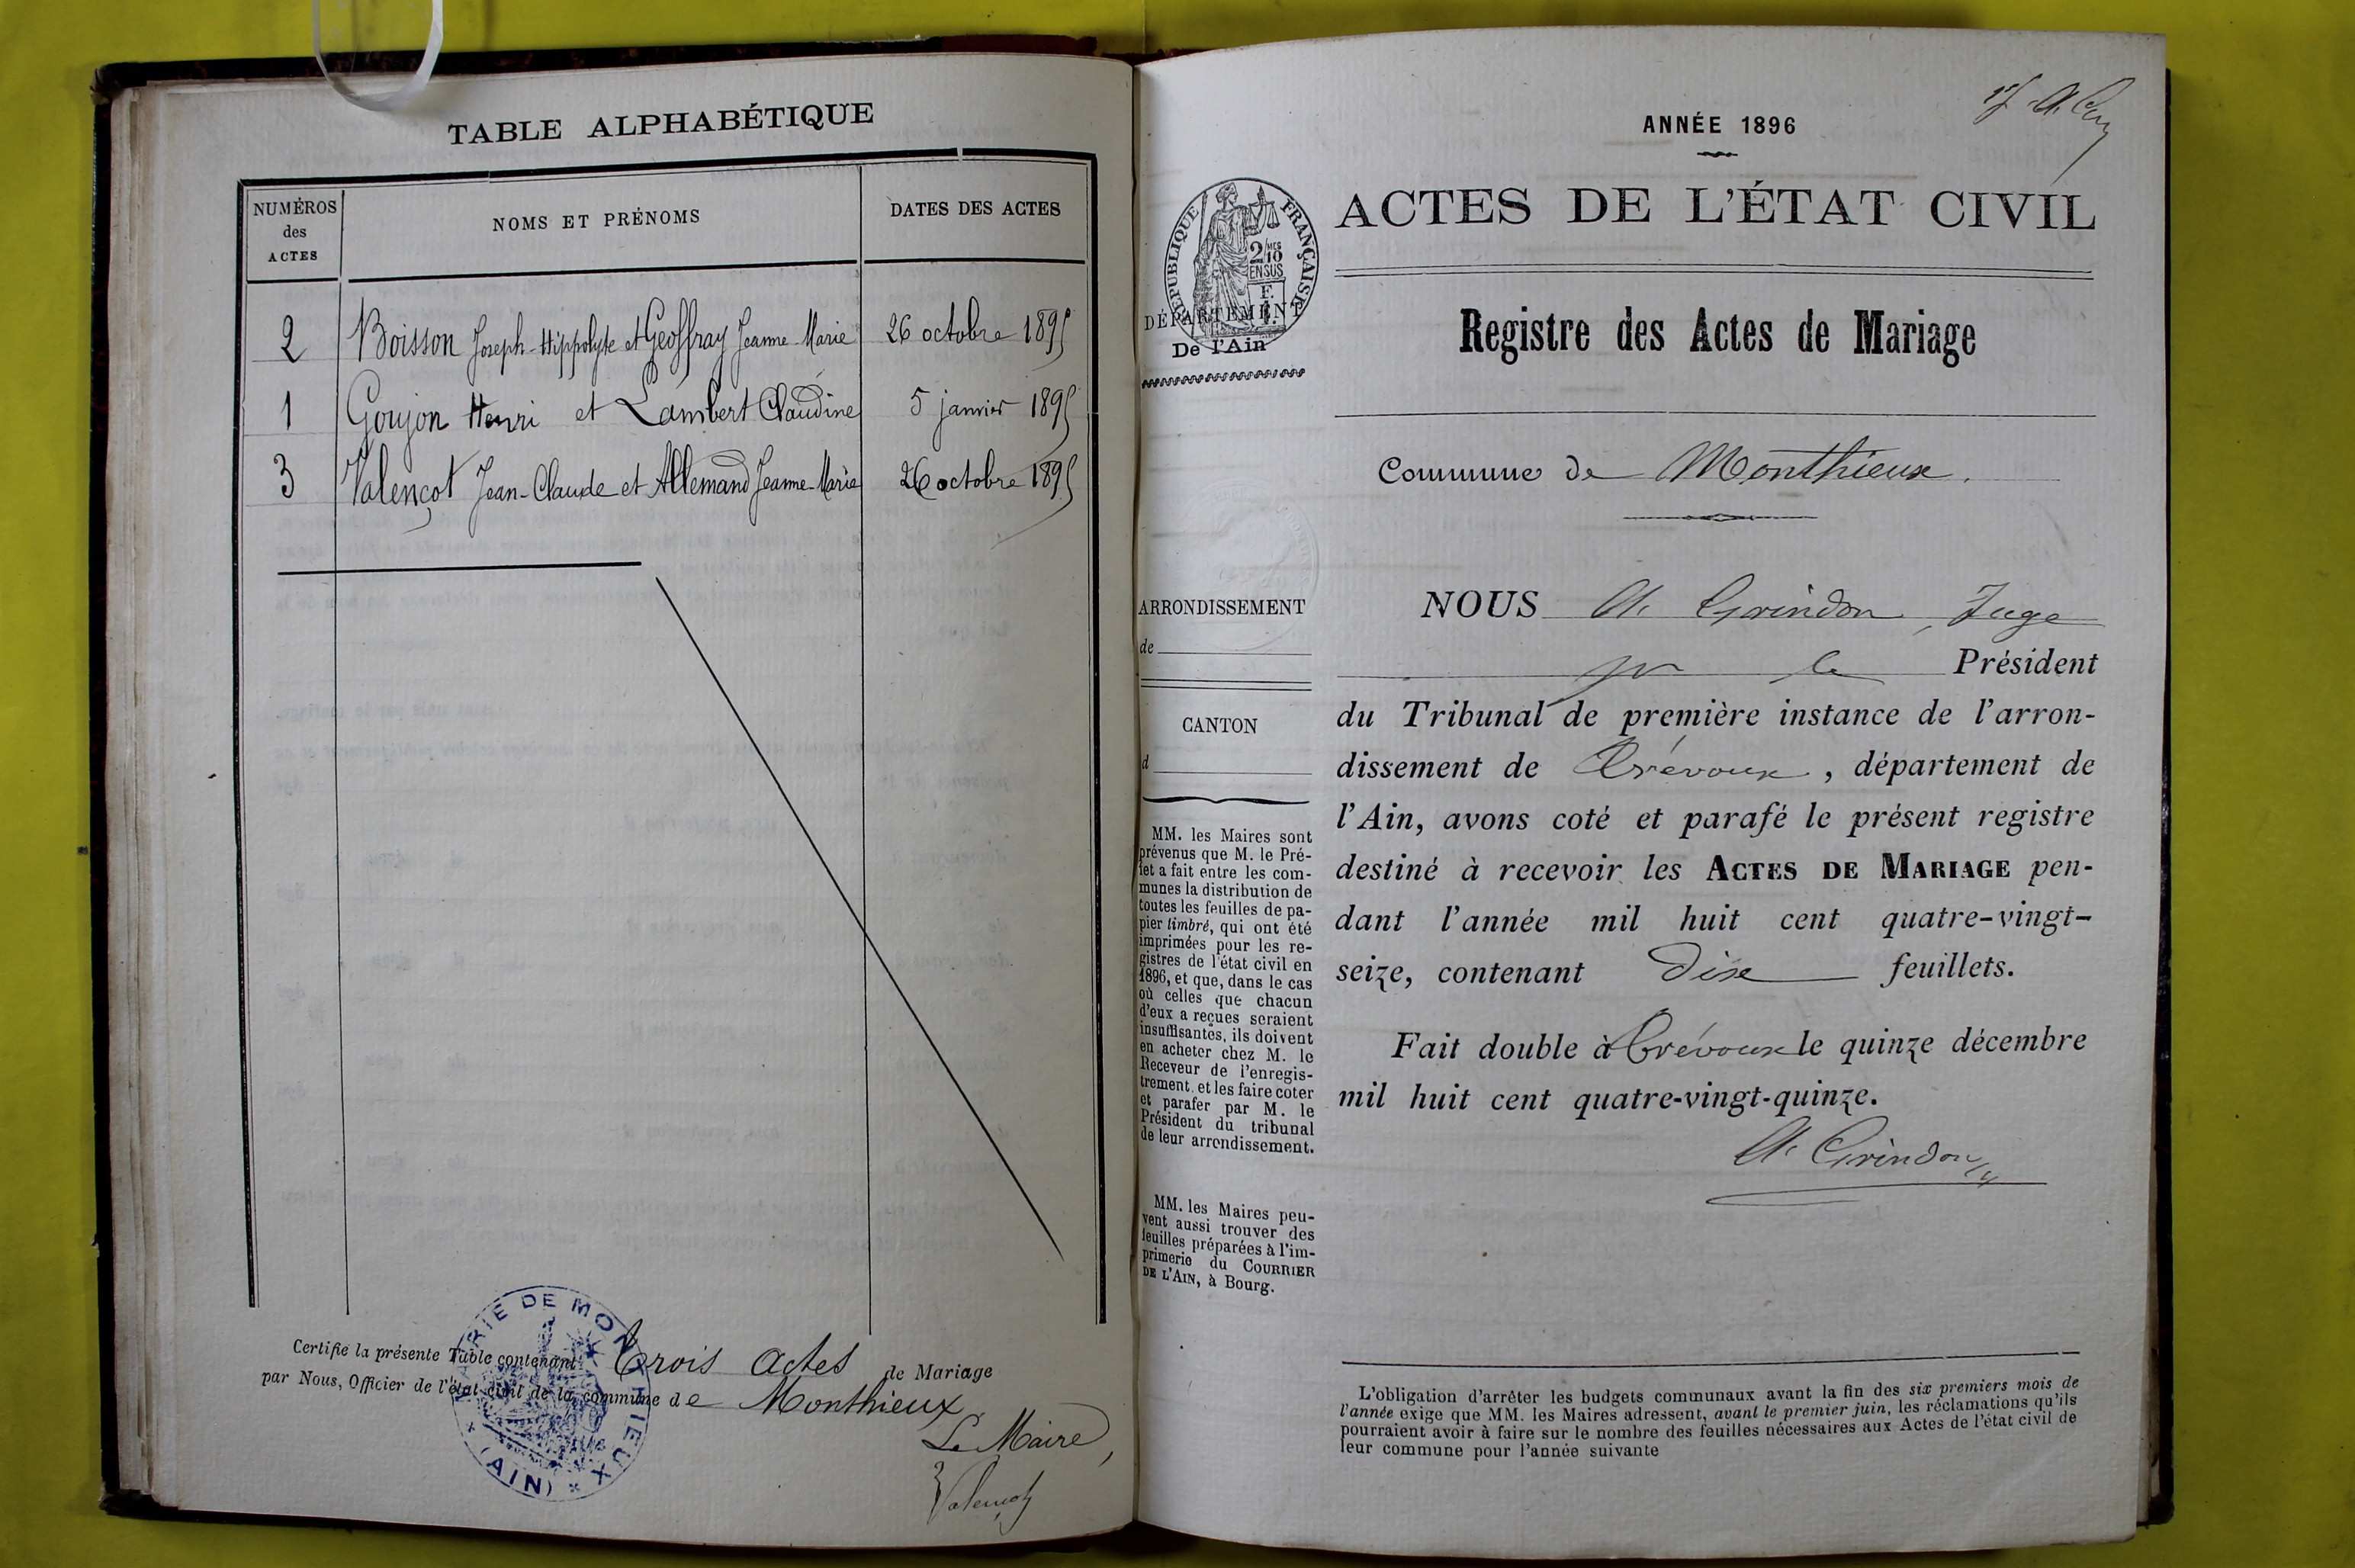 TABLE ALPHABÉTIQUE
NUMÉROS
des
ACTES
NOMS ET PRÉNOMS
DATES DES ACTES
2 Boisson Joseph-Hippolyte et Geoffray Jeanne-Marie 26 octobre 1895
1 Goujon Henri et Lambert Claudine 5 janvier 1895
3 Valençot Jean-Claude et Allemand Jeanne-Marie 26 octobre 1895
Certifie la présente Table contenant trois actes de Mariage
par Nous, Officier de l'état civil de la commune de Monthieux
Le Maire,
Valençot
MAIRIE DE MONTHIEUX
(AIN)
1er
ANNÉE 1896
ACTES DE L'ÉTAT CIVIL
RÉPUBLIQUE FRANÇAISE
2/10
EN SUS
DÉPARTEMENT
De l'Ain
Registre des Actes de Mariage
Commune de Monthieux.
ARRONDISSEMENT
de
CANTON
d
MM. les Maires sont
prévenus que M. le Pré-
fet a fait entre les com-
munes la distribution de
toutes les feuilles de pa-
pier timbré, qui ont été
imprimées pour les re-
gistres de l'état civil en
1896, et que, dans le cas
où celles que chacun
d'eux a reçues seraient
insuffisantes, ils doivent
en acheter chez M. le
Receveur de l'enregis-
trement et les faire coter
et parafer par M. le
Président du tribunal
de leur arrondissement.
MM. les Maires peu-
vent aussi trouver des
feuilles préparées à l'im-
primerie du COURRIER
DE L'AIN, à Bourg.
NOUS A. Grindon, Juge
pr le Président
du Tribunal de première instance de l'arron-
dissement de Trévoux, département de
l'Ain, avons coté et parafé le présent registre
destiné à recevoir les ACTES DE MARIAGE pen-
dant l'année mil huit cent quatre-vingt-
seize, contenant dix feuillets.
Fait double à Trévoux le quinze décembre
mil huit cent quatre-vingt-quinze.
A. Grindon
L'obligation d'arrêter les budgets communaux avant la fin des six premiers mois de
l'année exige que MM. les Maires adressent, avant le premier juin, les réclamations qu'ils
pourraient avoir à faire sur le nombre des feuilles nécessaires aux Actes de l'état civil de
leur commune pour l'année suivante